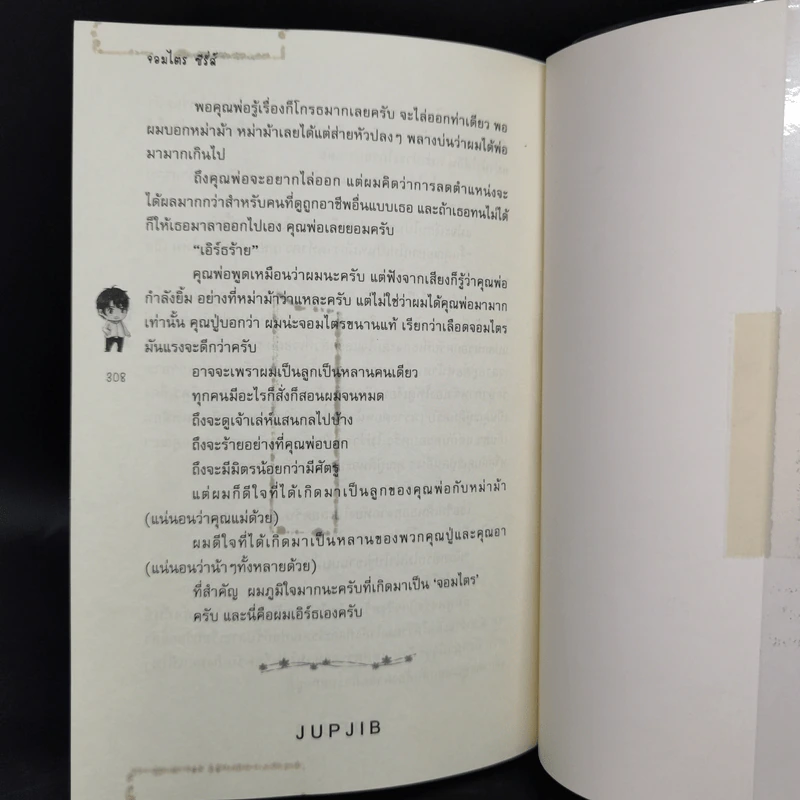 จอมไตร ซีรี่ส์
พอคุณพ่อรู้เรื่องก็โกรธมากเลยครับ จะไล่ออกท่าเดียว พอ
ผมบอกหม่าม้า หม่าม้าเลยได้แต่ส่ายหัวปลงๆ พลางบ่นว่าผมได้พ่อ
มามากเกินไป
ถึงคุณพ่อจะอยากไล่ออก แต่ผมคิดว่าการลดตำแหน่งจะ
ได้ผลมากกว่าสำหรับคนที่ดูถูกอาชีพอื่นแบบเธอ และถ้าเธอทนไม่ได้
ก็ให้เธอมาลาออกไปเอง คุณพ่อเลยยอมครับ
“เอิร์ธร้าย”
คุณพ่อพูดเหมือนว่าผมนะครับ แต่ฟังจากเสียงก็รู้ว่าคุณพ่อ
กำลังยิ้ม อย่างที่หม่าม้าว่าแหละครับ แต่ไม่ใช่ว่าผมได้คุณพ่อมามาก
เท่านั้น คุณปู่บอกว่า ผมน่ะจอมไตรขนานแท้ เรียกว่าเลือดจอมไตร
มันแรงจะดีกว่าครับ
308
อาจจะเพราะผมเป็นลูกเป็นหลานคนเดียว
ทุกคนมีอะไรก็สั่งก็สอนผมจนหมด
ถึงจะดูเจ้าเล่ห์แสนกลไปบ้าง
ถึงจะร้ายอย่างที่คุณพ่อบอก
ถึงจะมีมิตรน้อยกว่ามีศัตรู
แต่ผมก็ดีใจที่ได้เกิดมาเป็นลูกของคุณพ่อกับหม่าม้า
(แน่นอนว่าคุณแม่ด้วย)
ผมดีใจที่ได้เกิดมาเป็นหลานของพวกคุณปู่และคุณอา
(แน่นอนว่าน้าๆทั้งหลายด้วย)
ที่สำคัญ ผมภูมิใจมากนะครับที่เกิดมาเป็น ‘จอมไตร’
ครับ และนี่คือผมเอิร์ธเองครับ
JUPJIB